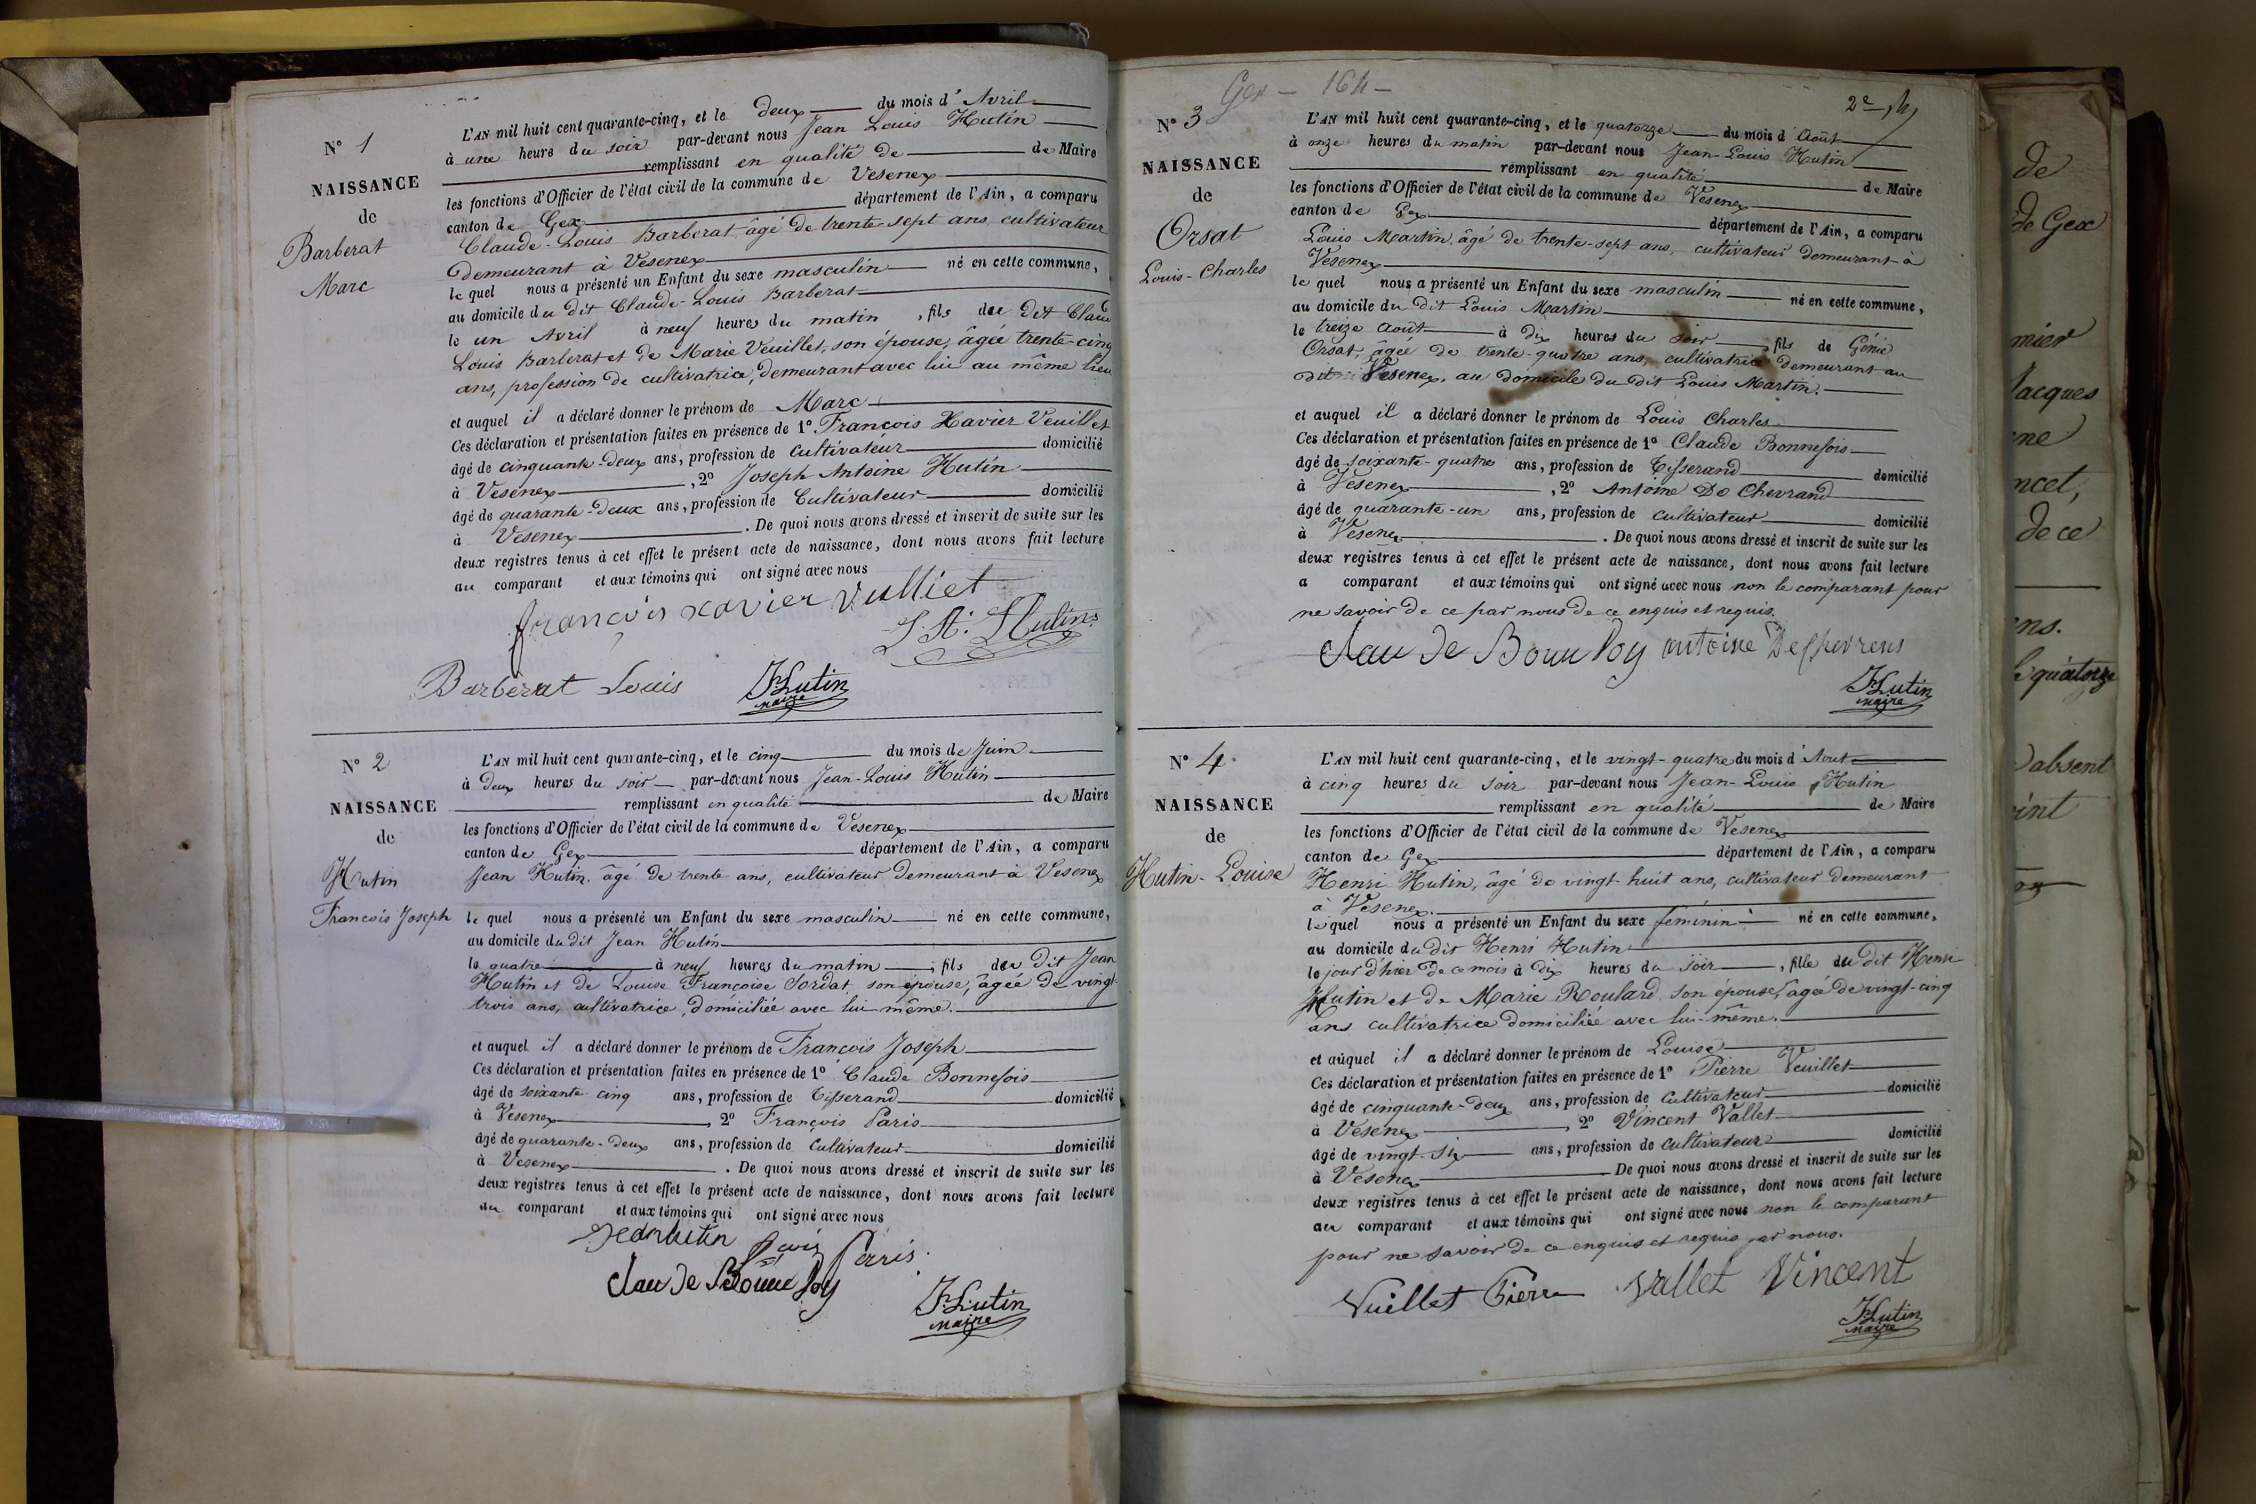 N° 1
NAISSANCE
de
Barberat
Marc
L'AN mil huit cent quarante-cinq, et le deux du mois d'Avril
à une heure du soir par-devant nous Jean Louis Hutin
remplissant en qualité de de Maire
les fonctions d'Officier de l'état civil de la commune de Vesenex
canton de Gex département de l'Ain, a comparu
Claude-Louis Barberat âgé de trente-sept ans, cultivateur
demeurant à Vesenex
le quel nous a présenté un Enfant du sexe masculin né en cette commune,
au domicile du dit Claude-Louis Barberat
le un Avril à neuf heures du matin, fils du dit Claud
Louis Barberat et de Marie Veuillet, son épouse, âgée trente-cinq
ans, profession de cultivatrice, demeurant avec lui au même lieu
et auquel il a déclaré donner le prénom de Marc
Ces déclaration et présentation faites en présence de 1° François Xavier Veuillet
âgé de cinquante-deux ans, profession de Cultivateur domicilié
à Vesenex, 2° Joseph Antoine Hutin
âgé de quarante-deux ans, profession de Cultivateur domicilié
à Vesenex. De quoi nous avons dressé et inscrit de suite sur les
deux registres tenus à cet effet le présent acte de naissance, dont nous avons fait lecture
au comparant et aux témoins qui ont signé avec nous
françois xavier vulliet
J. A. Hutin
Barberat Louis Hutin
maire
N° 2
NAISSANCE
de
Hutin
François Joseph
L'AN mil huit cent quarante-cinq, et le cinq du mois de Juin
à Deux heures du soir par-devant nous Jean-Louis Hutin
remplissant en qualité de Maire
les fonctions d'Officier de l'état civil de la commune de Vesenex
canton de Gex département de l'Ain, a comparu
Jean Hutin, âgé de trente ans, cultivateur demeurant à Vesenex
le quel nous a présenté un Enfant du sexe masculin né en cette commune,
au domicile du dit Jean Hutin
le quatre à neuf heures du matin, fils du dit Jean
Hutin et de Louise Françoise Sordat, son épouse, âgée de vingt
trois ans, cultivatrice, domiciliée avec lui-même.
et auquel il a déclaré donner le prénom de François Joseph
Ces déclaration et présentation faites en présence de 1° Claude Bonnefois
âgé de soixante-cinq ans, profession de Tisserand domicilié
à Vesenex, 2° François Paris
âgé de quarante-deux ans, profession de Cultivateur domicilié
à Vesenex. De quoi nous avons dressé et inscrit de suite sur les
deux registres tenus à cet effet le présent acte de naissance, dont nous avons fait lecture
au comparant et aux témoins qui ont signé avec nous
Jean hutin
Claude
Hutin
maire
Gex - 164 -
2e
N° 3
NAISSANCE
de
Orsat
Louis-Charles
L'AN mil huit cent quarante-cinq, et le quatorze du mois d'Août
à onze heures du matin par-devant nous Jean-Louis Hutin
remplissant en qualité de Maire
les fonctions d'Officier de l'état civil de la commune de Vesenex
canton de Gex département de l'Ain, a comparu
Louis Martin, âgé de trente-sept ans, cultivateur demeurant à
Vesenex
le quel nous a présenté un Enfant du sexe masculin né en cette commune,
au domicile du dit Louis Martin
le treize août à dix heures du soir, fils de Génie
Orsat, âgée de trente-quatre ans, cultivatrice demeurant au
dit Vesenex, au domicile du dit Louis Martin.
et auquel il a déclaré donner le prénom de Louis Charles
Ces déclaration et présentation faites en présence de 1° Claude Bonnefois
âgé de soixante-quatre ans, profession de Tisserand domicilié
à Vesenex, 2° Antoine De Chevrand
âgé de quarante-un ans, profession de cultivateur domicilié
à Vesenex. De quoi nous avons dressé et inscrit de suite sur les
deux registres tenus à cet effet le présent acte de naissance, dont nous avons fait lecture
a comparant et aux témoins qui ont signé avec nous non le comparant pour
ne savoir de ce par nous de ce enquis et requis.
Claude antoine Dechevrens
Hutin
maire
N° 4
NAISSANCE
de
Hutin-Louise
L'AN mil huit cent quarante-cinq, et le vingt-quatre du mois d'Aout
à cinq heures du soir par-devant nous Jean-Louis Hutin
remplissant en qualité de Maire
les fonctions d'Officier de l'état civil de la commune de Vesenex
canton de Gex département de l'Ain, a comparu
Henri Hutin, âgé de vingt-huit ans, cultivateur demeurant
à Vesenex.
le quel nous a présenté un Enfant du sexe féminin né en cette commune,
au domicile du dit Henri Hutin
le jour d'hier de ce mois à dix heures du soir, fille du dit Henri
Hutin et de Marie Roulard, son épouse, âgée de vingt-cinq
ans cultivatrice domiciliée avec lui-même.
et auquel il a déclaré donner le prénom de Louise
Ces déclaration et présentation faites en présence de 1° Pierre Veuillet
âgé de cinquante-deux ans, profession de Cultivateur domicilié
à Vesenex, 2° Vincent Vallet
âgé de vingt-six ans, profession de cultivateur domicilié
à Vesenex. De quoi nous avons dressé et inscrit de suite sur les
deux registres tenus à cet effet le présent acte de naissance, dont nous avons fait lecture
au comparant et aux témoins qui ont signé avec nous non le comparant
pour ne savoir de ce enquis et requis par nous.
Vuillet Pierre Vallet Vincent
Hutin
maire
de
de Gex
Jacques
de ce
quatorze
absent